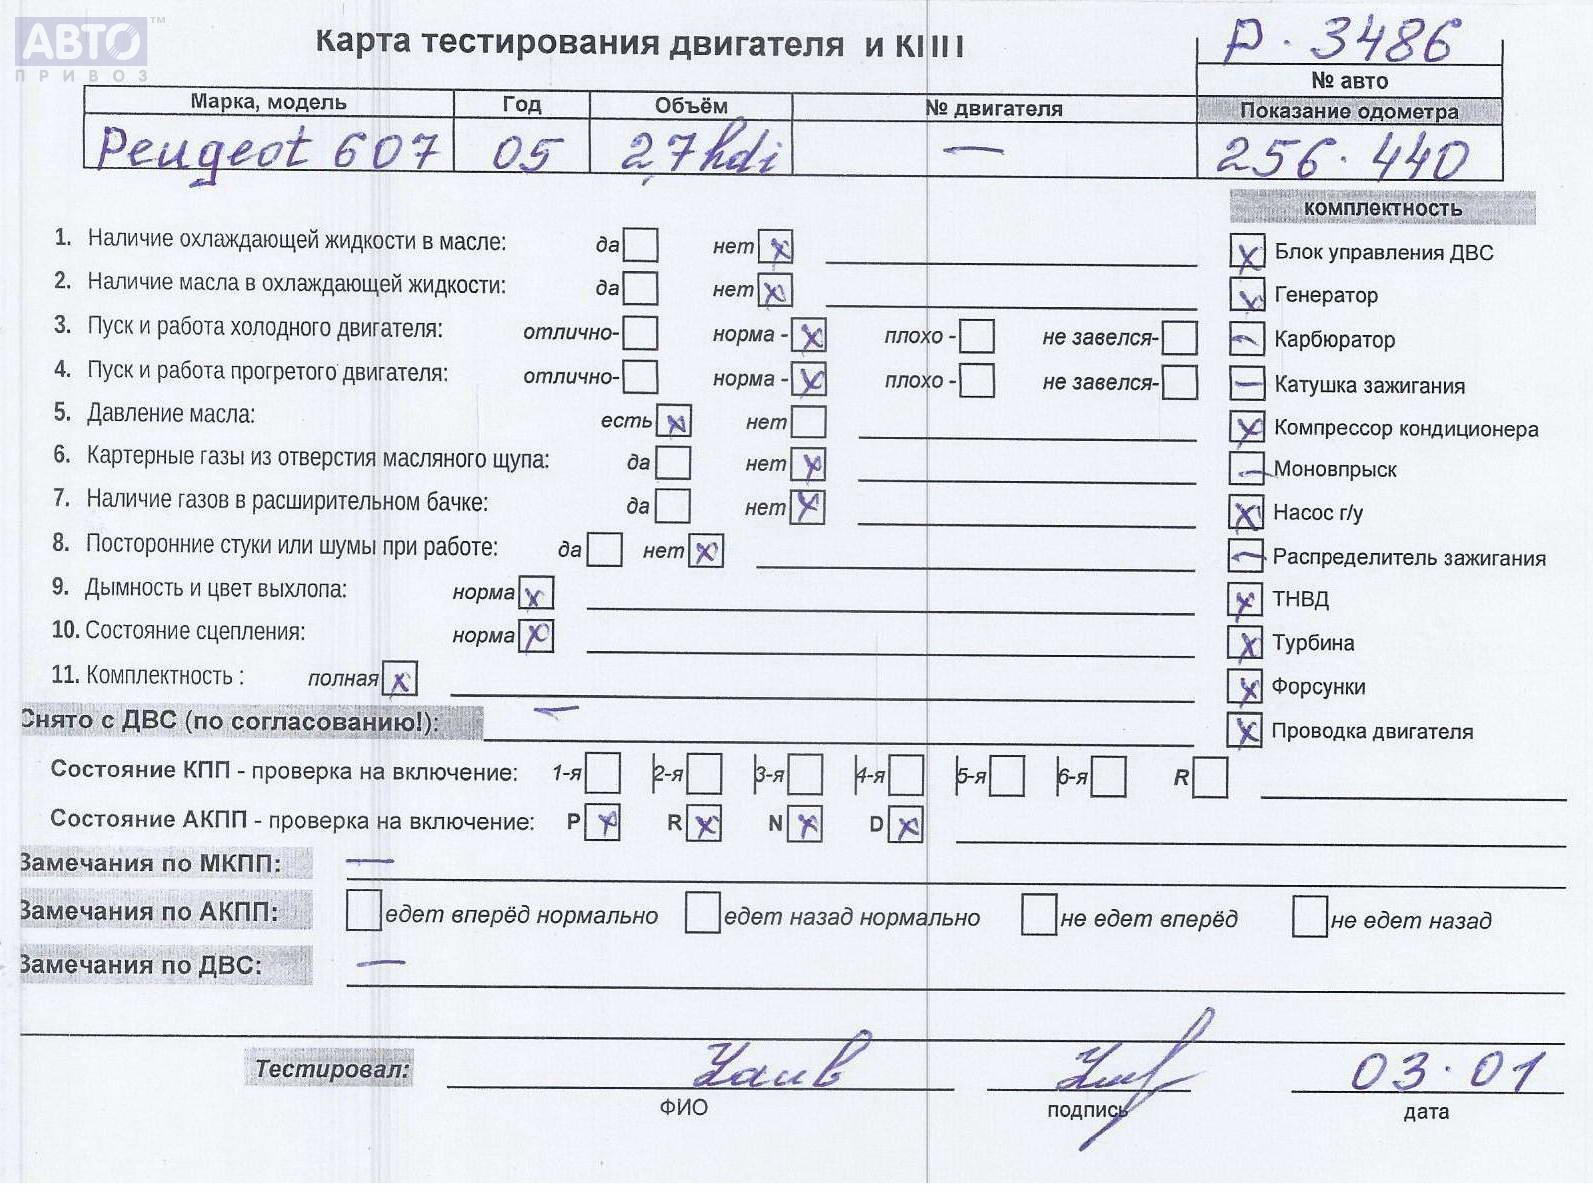 АВТО™
ПРИВОЗ
Карта тестирования двигателя и КПП
Р. 3486
№ авто
Марка, модель Год Объём № двигателя Показание одометра
Peugeot 607 05 2,7 hdi — 256.440
комплектность
1. Наличие охлаждающей жидкости в масле: да нет x
2. Наличие масла в охлаждающей жидкости: да нет x
3. Пуск и работа холодного двигателя: отлично- норма - x плохо - не завелся-
4. Пуск и работа прогретого двигателя: отлично- норма - x плохо - не завелся-
5. Давление масла: есть x нет
6. Картерные газы из отверстия масляного щупа: да нет x
7. Наличие газов в расширительном бачке: да нет x
8. Посторонние стуки или шумы при работе: да нет x
9. Дымность и цвет выхлопа: норма x
10. Состояние сцепления: норма x
11. Комплектность : полная x
x Блок управления ДВС
x Генератор
— Карбюратор
— Катушка зажигания
x Компрессор кондиционера
— Моновпрыск
x Насос г/у
— Распределитель зажигания
x ТНВД
x Турбина
x Форсунки
x Проводка двигателя
Снято с ДВС (по согласованию!): —
Состояние КПП - проверка на включение: 1-я 2-я 3-я 4-я 5-я 6-я R
Состояние АКПП - проверка на включение: P x R x N x D x
Замечания по МКПП: —
Замечания по АКПП: едет вперёд нормально едет назад нормально не едет вперёд не едет назад
Замечания по ДВС: —
Тестировал: 03.01
ФИО подпись дата